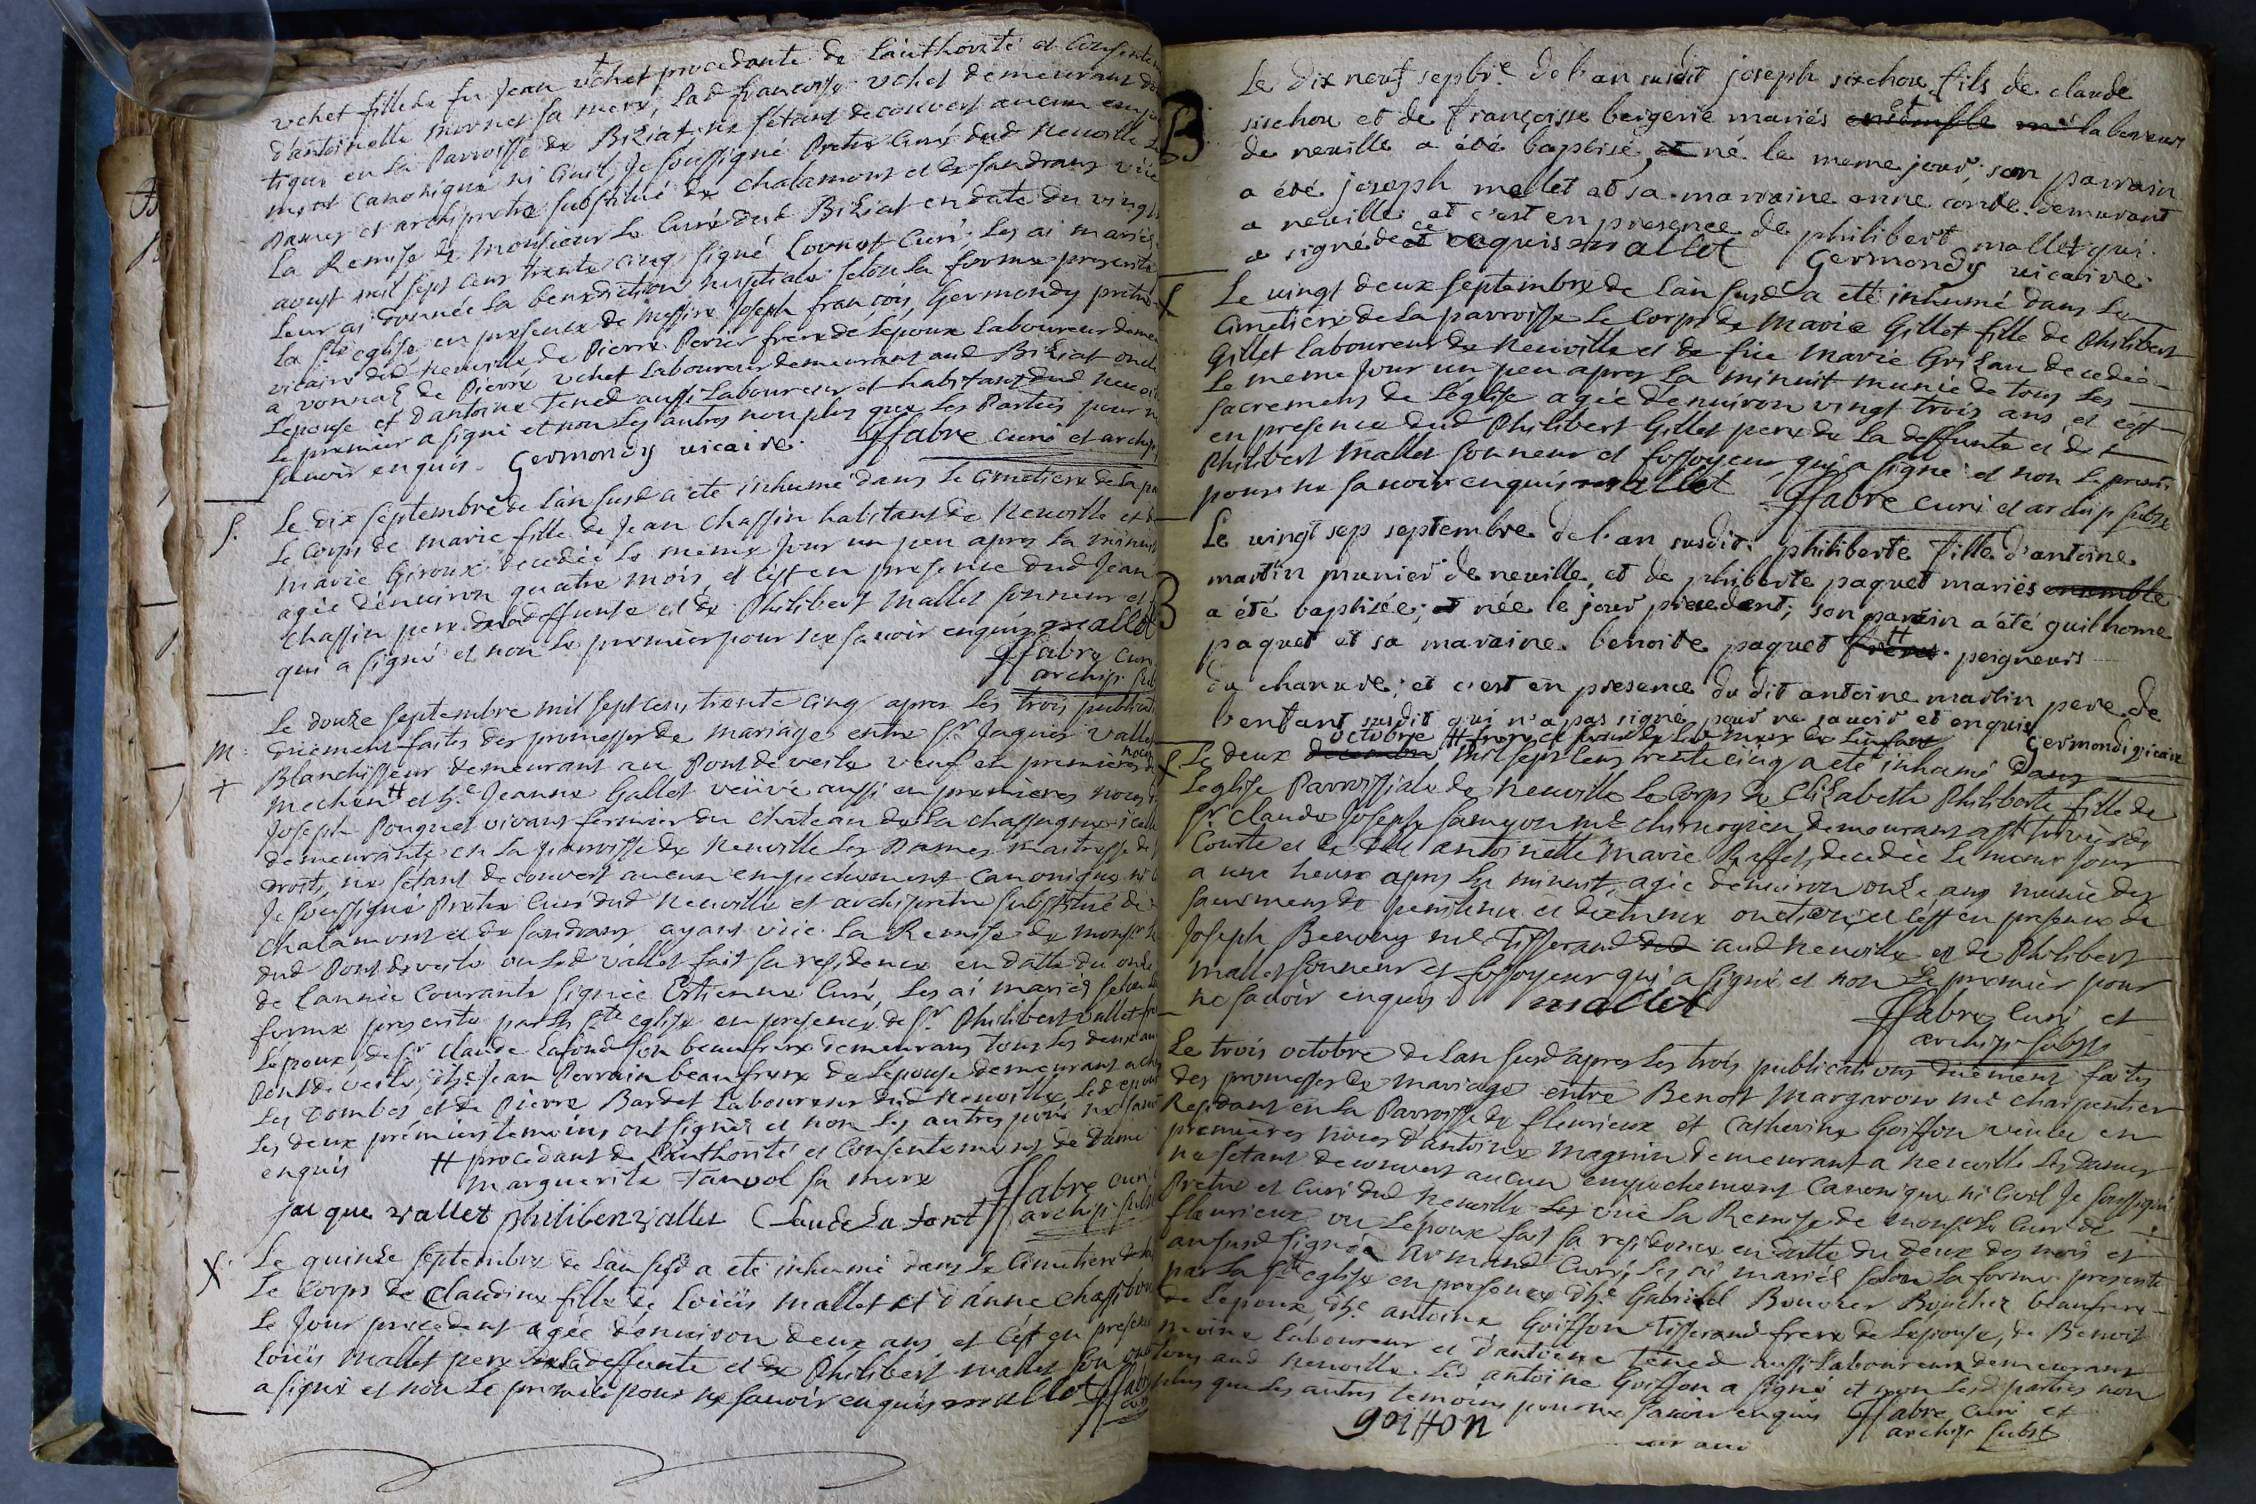 uchet fille de fu Jean uchet procedante de l'authorité et consentem
d'antoinette mornet sa mere, lad francoise uchet demeurant
tique en la Parroisse de Biziat, ne s'étant decouvert aucun empe
ment canonique ni civil, Je soussigné Pretre Curé dud Neuville Les
Dames et archipretre substitué de chalamont et de sandrans viüe
La Remise de monsieur Le Curé dud Biziat en date du vingt
aoust mil sept cens trente cinq signé Cornet Curé, Les ai mariés
Leur ai donnée la benediction nuptiale selon la forme prescrite
La ste eglise en presence de messire Joseph françois Germondy pretre
vicaire dud Neuville de Pierre Perier frere de l'epoux laboureur demeu
a vonnaz de Pierre uchet Laboureur demeurant aud Biziat oncle
L'epouse et d'antoine Tened aussi Laboureur et habitant dud neuville
Le premier a signé et non Les autres non plus que Les Parties pour n
sauoir enquis. Germondy vicaire. ffabre curé et archip
S. Le dix septembre de l'an susd a eté inhumé dans le cimetiere de la pa
Le corps de marie fille de Jean chassin habitant de Neuville et de
marie Giroux decedée Le meme Jour un peu apres la minuit
agée d'enuiron quatre mois, et c'est en presence dud Jean
chassin pere de la deffunte et de Philibert mallet sonneur et
qui a signé et non le premier pour ne sauoir enquis mallet
ffabre Curé
archip. sub
m. Le douze septembre mil sept cens trente cinq apres les trois publicat
düement faites des promesses de mariage entre sr. Jaques vallet
Blanchisseur demeurant au Pont de vesle veuf en premieres noces de
mechin # et h.e Jeanne Gallet veüve aussi en premières noces d
Joseph Pouquet vivant fermier du chateau de la chassagne icelle
demeurante en la parroisse de Neuville Les Dames maitresse de
droits, ne s'étant decouvert aucun empechement canonique ni c
Je soussigné Pretre Curé dud Neuville et archipretre substitué de
chalamont et de sandrans ayant viüe la Remise de monsr
dud Pont de vesle ou led vallet fait sa residence en datte du onze
de l'année courante signée Estienne Curé, Les ai mariés selon la
forme prescrite par la ste eglise en presence de sr. Philibert vallet fre
L'epoux, de sr claude Lafond son beaufrere demeurans tous les deux au
Pont de vesle, d'h.e Jean Perrain beaufrere de L'epouse demeurant a cha
Les Dombes et de Pierre Bardet Laboureur dud Neuville, Led epoux
Les deux prémiers temoins ont signés et non Les autres pour ne sauoir
enquis # procedant de l'authorité et consentement de Dame
marguerite Tanvol sa mere ffabre curé
jaque vallet philibert vallet Claude La font archip. subst
S. Le quinze septembre de l'an susd a eté inhumé dans le cimetiere de la
Le corps de claudine fille de Loüis mallet et d'anne chassibou
Le Jour precedent agée d'enuiron deux ans, et c'est en presence
Loüis mallet pere de la deffunte et de Philibert mallet son
a signé et non le premier pour ne sauoir enquis mallet ffabre
B Le dix neuf sepbre de l'an susdit joseph sischoux fils de claude
sischoux et de françoise bergerie mariés ensemble et laboureurs
de neuille a été baptisé, né le meme jour, son parrain
a été joseph mellet et sa marraine anne conde demurant
a neuille et c'est en presence de philibert mallet qui
a signé de ce requis mallet Germondy uicaire
S Le vingt deux septembre de l'an susd a eté inhumé dans le
Cimetiere de la parroisse le corps de Marie Gillet fille de Philibert
Gillet laboureur de Neuville et de füe Marie Grisau decedée
Le meme Jour un peu apres la minuit munie de tous les
sacremens de l'église agée d'enuiron vingt trois ans, et c'est
en presence dud Philibert Gillet pere de la deffunte et de
Philibert mallet sonneur et fossoyeur qui a signé et non le premier
pour ne sauoir enquis mallet ffabre curé et archip subst
B Le vingt sep septembre de l'an susdit philiberte fille d'antoine
martin prunier de neuille, et de phiberte paquet mariés ensemble
a été baptisée; et née le jour precedent; son parrin a été guilhome
paquet et sa maraine benoite paquet freres # peigneurs
du chanure; et c'est en presence du dit antoine martin pere de
l'enfant susdit qui n'a pas signé pour ne sauoir et enquis
# frere et soeur de la mere de l'enfant Germondi vicaire
S Le deux decembre octobre mil sept cens trente cinq a eté inhumé dans
L'eglise Parroissiale de Neuville le corps de Elizabeth Philiberte fille de
sr. claude Joseph Sameyon me chirurgien demeurant a st trivier de
Courte et de Dlle antoinette Marie Raffet, decedée le meme Jour
a une heure apres la minuit, agée d'enuiron onze ans munie des
sacremens de penitence et d'extreme onction, et c'est en presence de
Joseph Beuouy me Tisserand dud aud Neuville et de Philibert
mallet sonneur et fossoyeur qui a signé et non le premier pour
ne sauoir enquis mallet ffabre Curé et
archip. subst
Le trois octobre de l'an susd apres les trois publications düement faites
des promesses de mariage entre Benoit Margaron me charpentier
Residant en la Parroisse de fleurieux et Catherine Goiffon veüve en
premières noces d'antoine Magnin demeurant a Neuville Les Dames
ne s'etant decouvert aucun empechement canonique ni civil Je soussigné
Pretre et Curé dud Neuville viüe la Remise de monsr le Curé de
fleurieux ou L'epoux fait sa residence en datte du deux des mois et
an susd signée armand Curé, les ai mariés selon la forme prescrite
par la ste eglise en presence d'h.e Gabriel Bouvier Boucher beaufrere
de l'epoux, d'h.e antoine Goiffon Tisserand frere de L'epouse, de Benoit
moine laboureur et d'antoine Tened aussi laboureur demeurans
tous aud Neuville. Led antoine Goiffon a signé et non lesd parties non
plus que les autres temoins pour ne sauoir enquis ffabre curé et
goiffon archip. subst